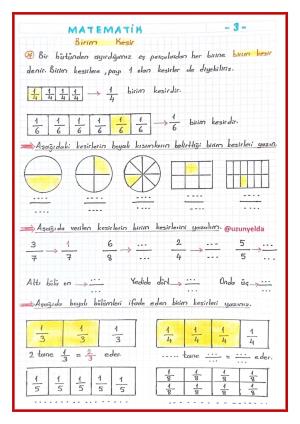 MATEMATİK -3-
Birim Kesir
Bir bütünden ayırdığımız eş parçalardan her birine birim kesir
denir. Birim kesirlere, payı 1 olan kesirler de diyebiliriz.
1/4 1/4 1/4 1/4 → 1/4 birim kesirdir.
1/6 1/6 1/6 1/6 1/6 1/6 → 1/6 birim kesirdir.
Aşağıdaki kesirlerin boyalı kısımlarının belirttiği birim kesirleri yazın.
Aşağıda verilen kesirlerin birim kesirlerini yazalım. @uzunyelda
3/7 → 1/7 6/8 → 2/4 → 5/5 →
Altı bölü on → Yedide dört → Onda üç →
Aşağıda boyalı bölümleri ifade eden birim kesirleri yazınız.
1/3 1/3 1/3 1/4 1/4 1/4 1/4
2 tane 1/3 = 2/3 eder. ..... tane = eder.
1/5 1/5 1/5 1/5 1/5 1/8 1/8 1/8 1/8
1/8 1/8 1/8 1/8